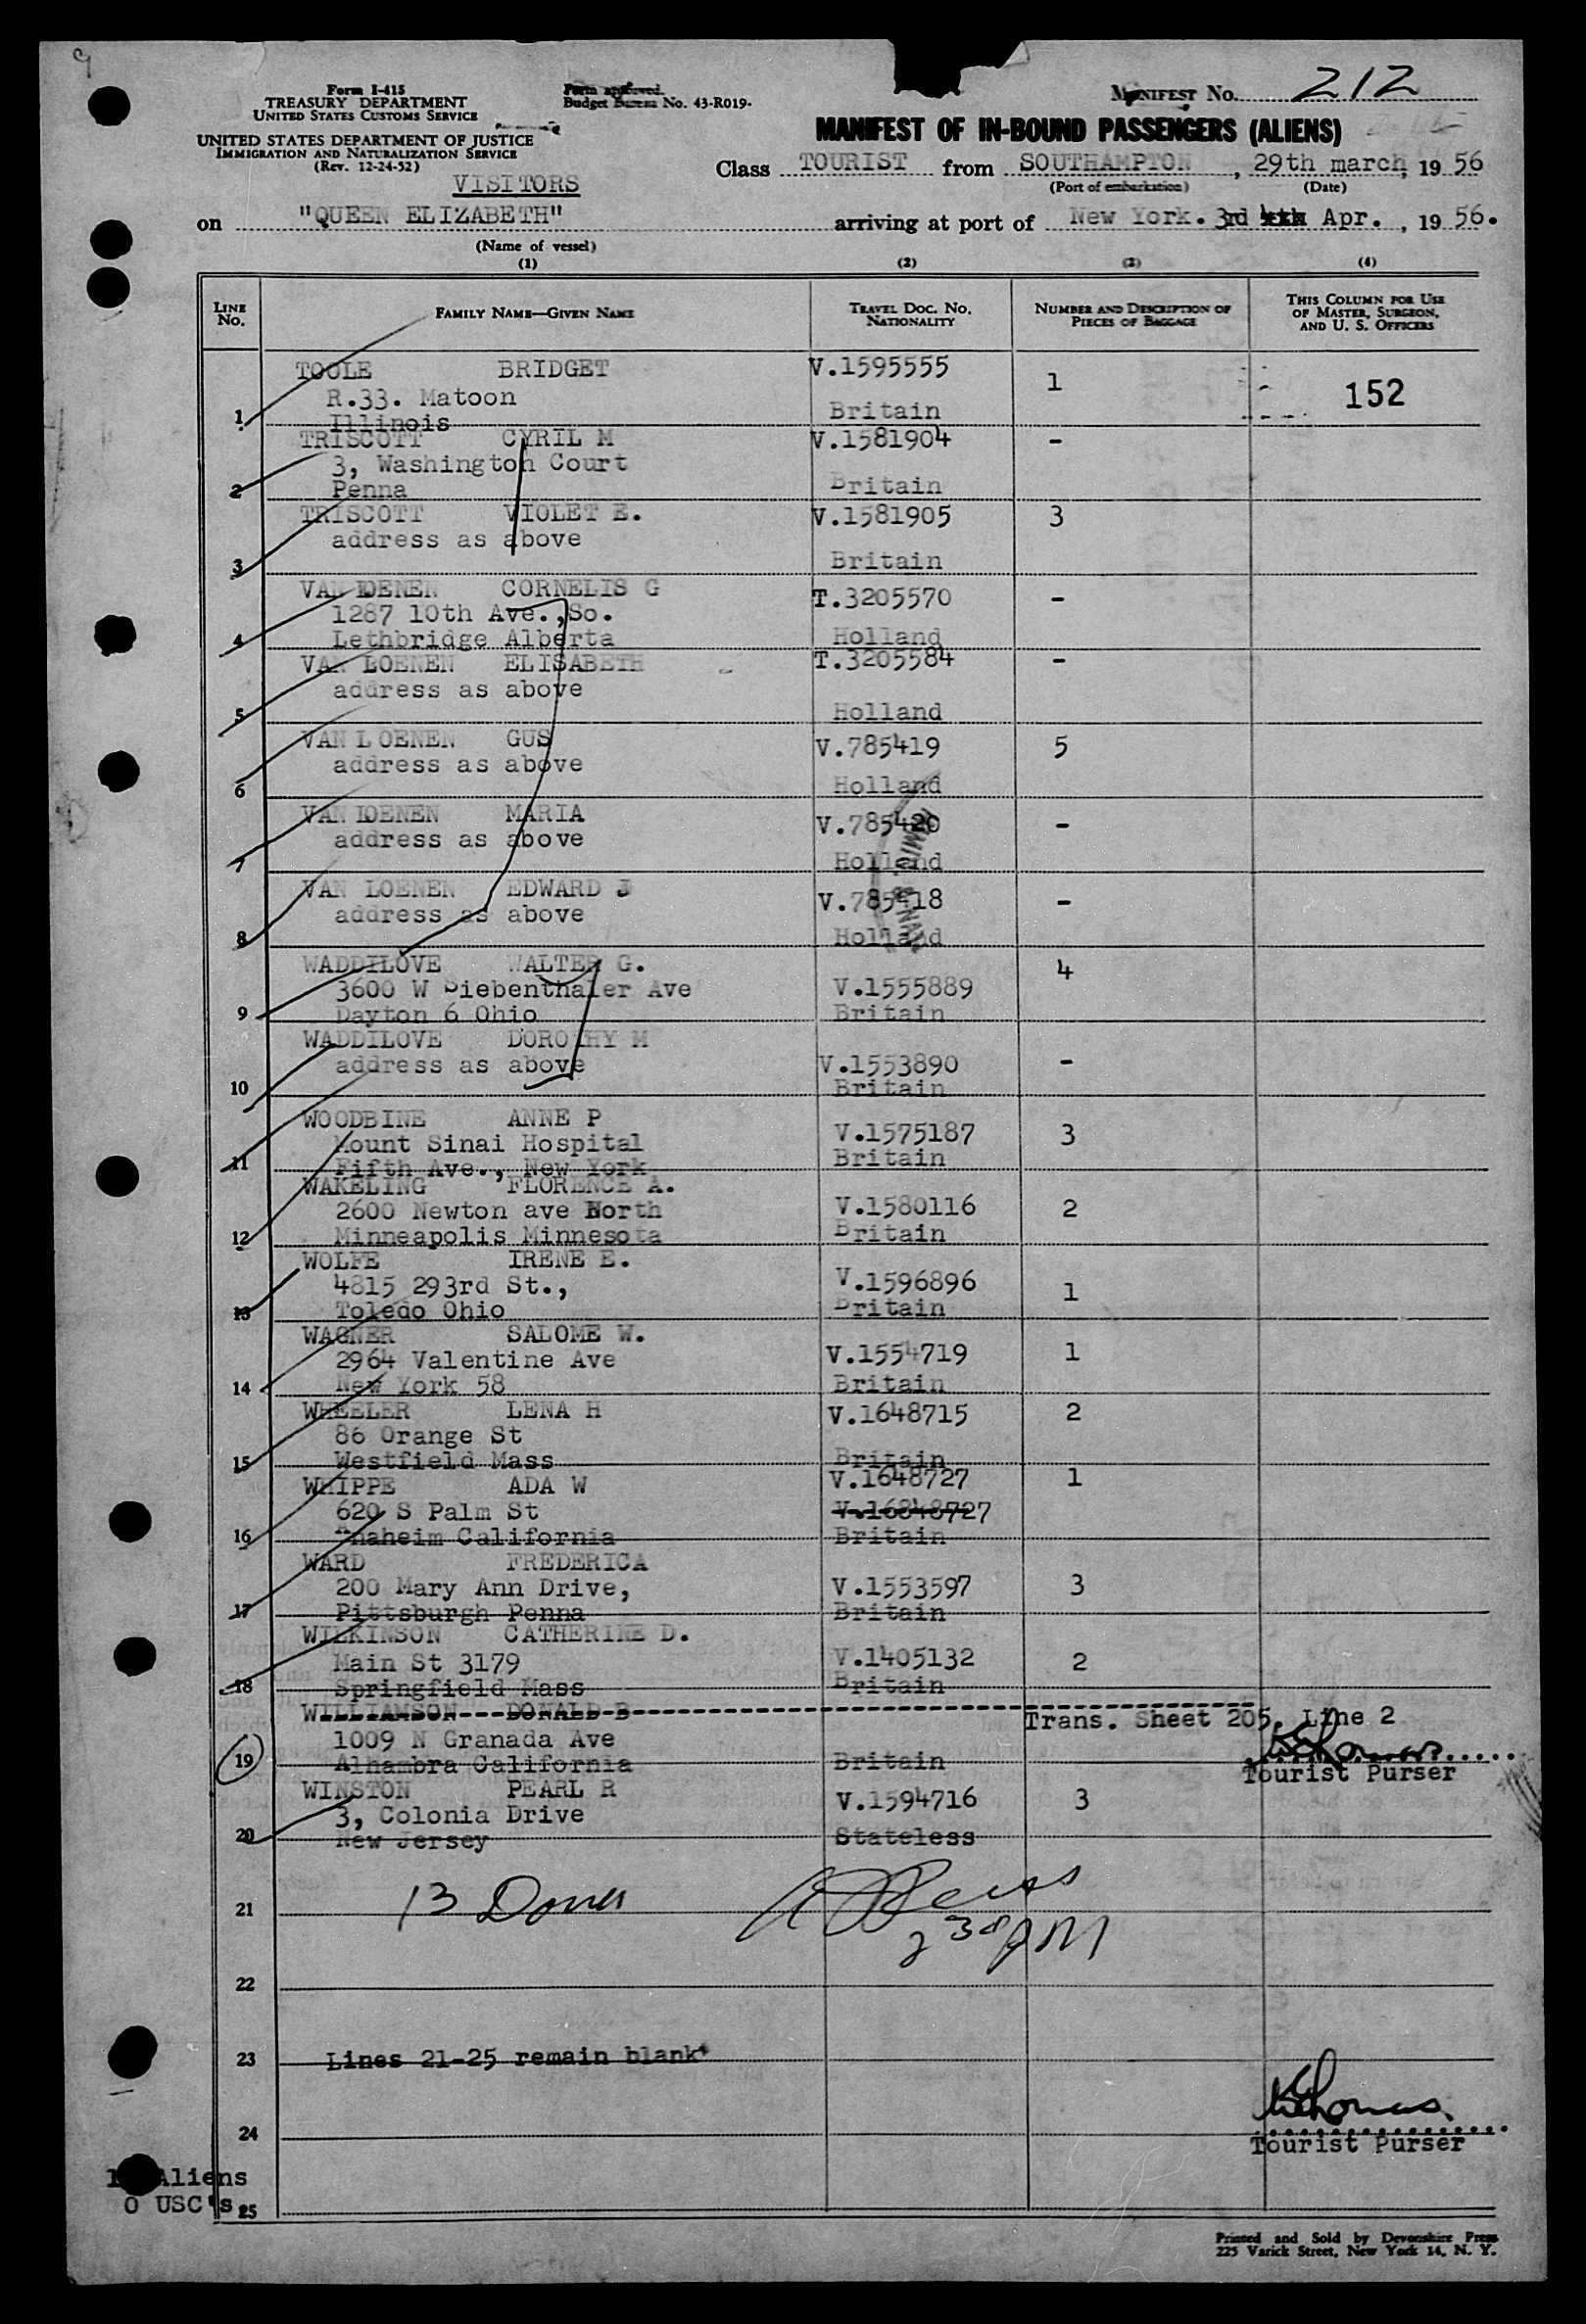 Form I-415
TREASURY DEPARTMENT
UNITED STATES CUSTOMS SERVICE
UNITED STATES DEPARTMENT OF JUSTICE
IMMIGRATION AND NATURALIZATION SERVICE
(Rev. 12-24-52)
VISITORS
Form approved.
Budget Bureau No. 43-R019-
MANIFEST No. 212
MANIFEST OF IN-BOUND PASSENGERS (ALIENS)
Class TOURIST from SOUTHAMPTON, 29th march, 19 56
(Port of embarkation) (Date)
on "QUEEN ELIZABETH" arriving at port of New York. 3rd Apr. , 19 56.
(Name of vessel)
(1) (2) (3) (4)
LINE No. FAMILY NAME—GIVEN NAME TRAVEL DOC. No. NATIONALITY NUMBER AND DESCRIPTION OF PIECES OF BAGGAGE THIS COLUMN FOR USE OF MASTER, SURGEON, AND U. S. OFFICERS
TOOLE BRIDGET V.1595555 1 152
R.33. Matoon
1 Illinois Britain
TRISCOTT CYRIL M V.1581904 -
3, Washington Court
2 Penna Britain
TRISCOTT VIOLET E. V.1581905 3
address as above
3 Britain
VAN LOENEN CORNELIS G T.3205570 -
1287 10th Ave.,So.
4 Lethbridge Alberta Holland
VAN LOENEN ELISABETH T.3205584 -
address as above
5 Holland
VAN LOENEN GUS V.785419 5
address as above
6 Holland
VAN LOENEN MARIA V.785420 -
address as above
7 Holland
VAN LOENEN EDWARD J V.785418 -
address as above
8 Holland
IMMIG. & NAT.
WADDILOVE WALTER G. 4
3600 W Siebenthaler Ave V.1555889
9 Dayton 6 Ohio Britain
WADDILOVE DOROTHY M
address as above V.1553890 -
10 Britain
WOODBINE ANNE P
Mount Sinai Hospital V.1575187 3
11 Fifth Ave., New York Britain
WAKELING FLORENCE A.
2600 Newton ave North V.1580116 2
12 Minneapolis Minnesota Britain
WOLFE IRENE E.
4815 293rd St., V.1596896 1
13 Toledo Ohio Britain
WAGNER SALOME W.
2964 Valentine Ave V.1554719 1
14 New York 58 Britain
WHEELER LENA H V.1648715 2
86 Orange St
15 Westfield Mass Britain
WHIPPE ADA W V.1648727 1
620 S Palm St V.16848727
16 Anaheim California Britain
WARD FREDERICA
200 Mary Ann Drive, V.1553597 3
17 Pittsburgh Penna Britain
WILKINSON CATHERINE D.
Main St 3179 V.1405132 2
18 Springfield Mass Britain
WILLIAMSON DONALD B Trans. Sheet 205, Line 2
1009 N Granada Ave
19 Alhambra California Britain
Tourist Purser
WINSTON PEARL R V.1594716 3
3, Colonia Drive
20 New Jersey Stateless
21 13
22
23 Lines 21-25 remain blank
24
Tourist Purser
Aliens
0 USC's
25
Printed and Sold by Devonshire Press
225 Varick Street, New York 14, N. Y.